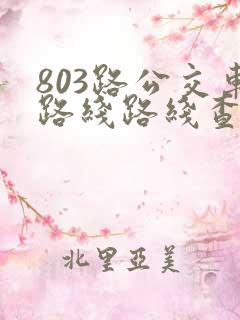 803路公交车
路线路线查
北里亞美